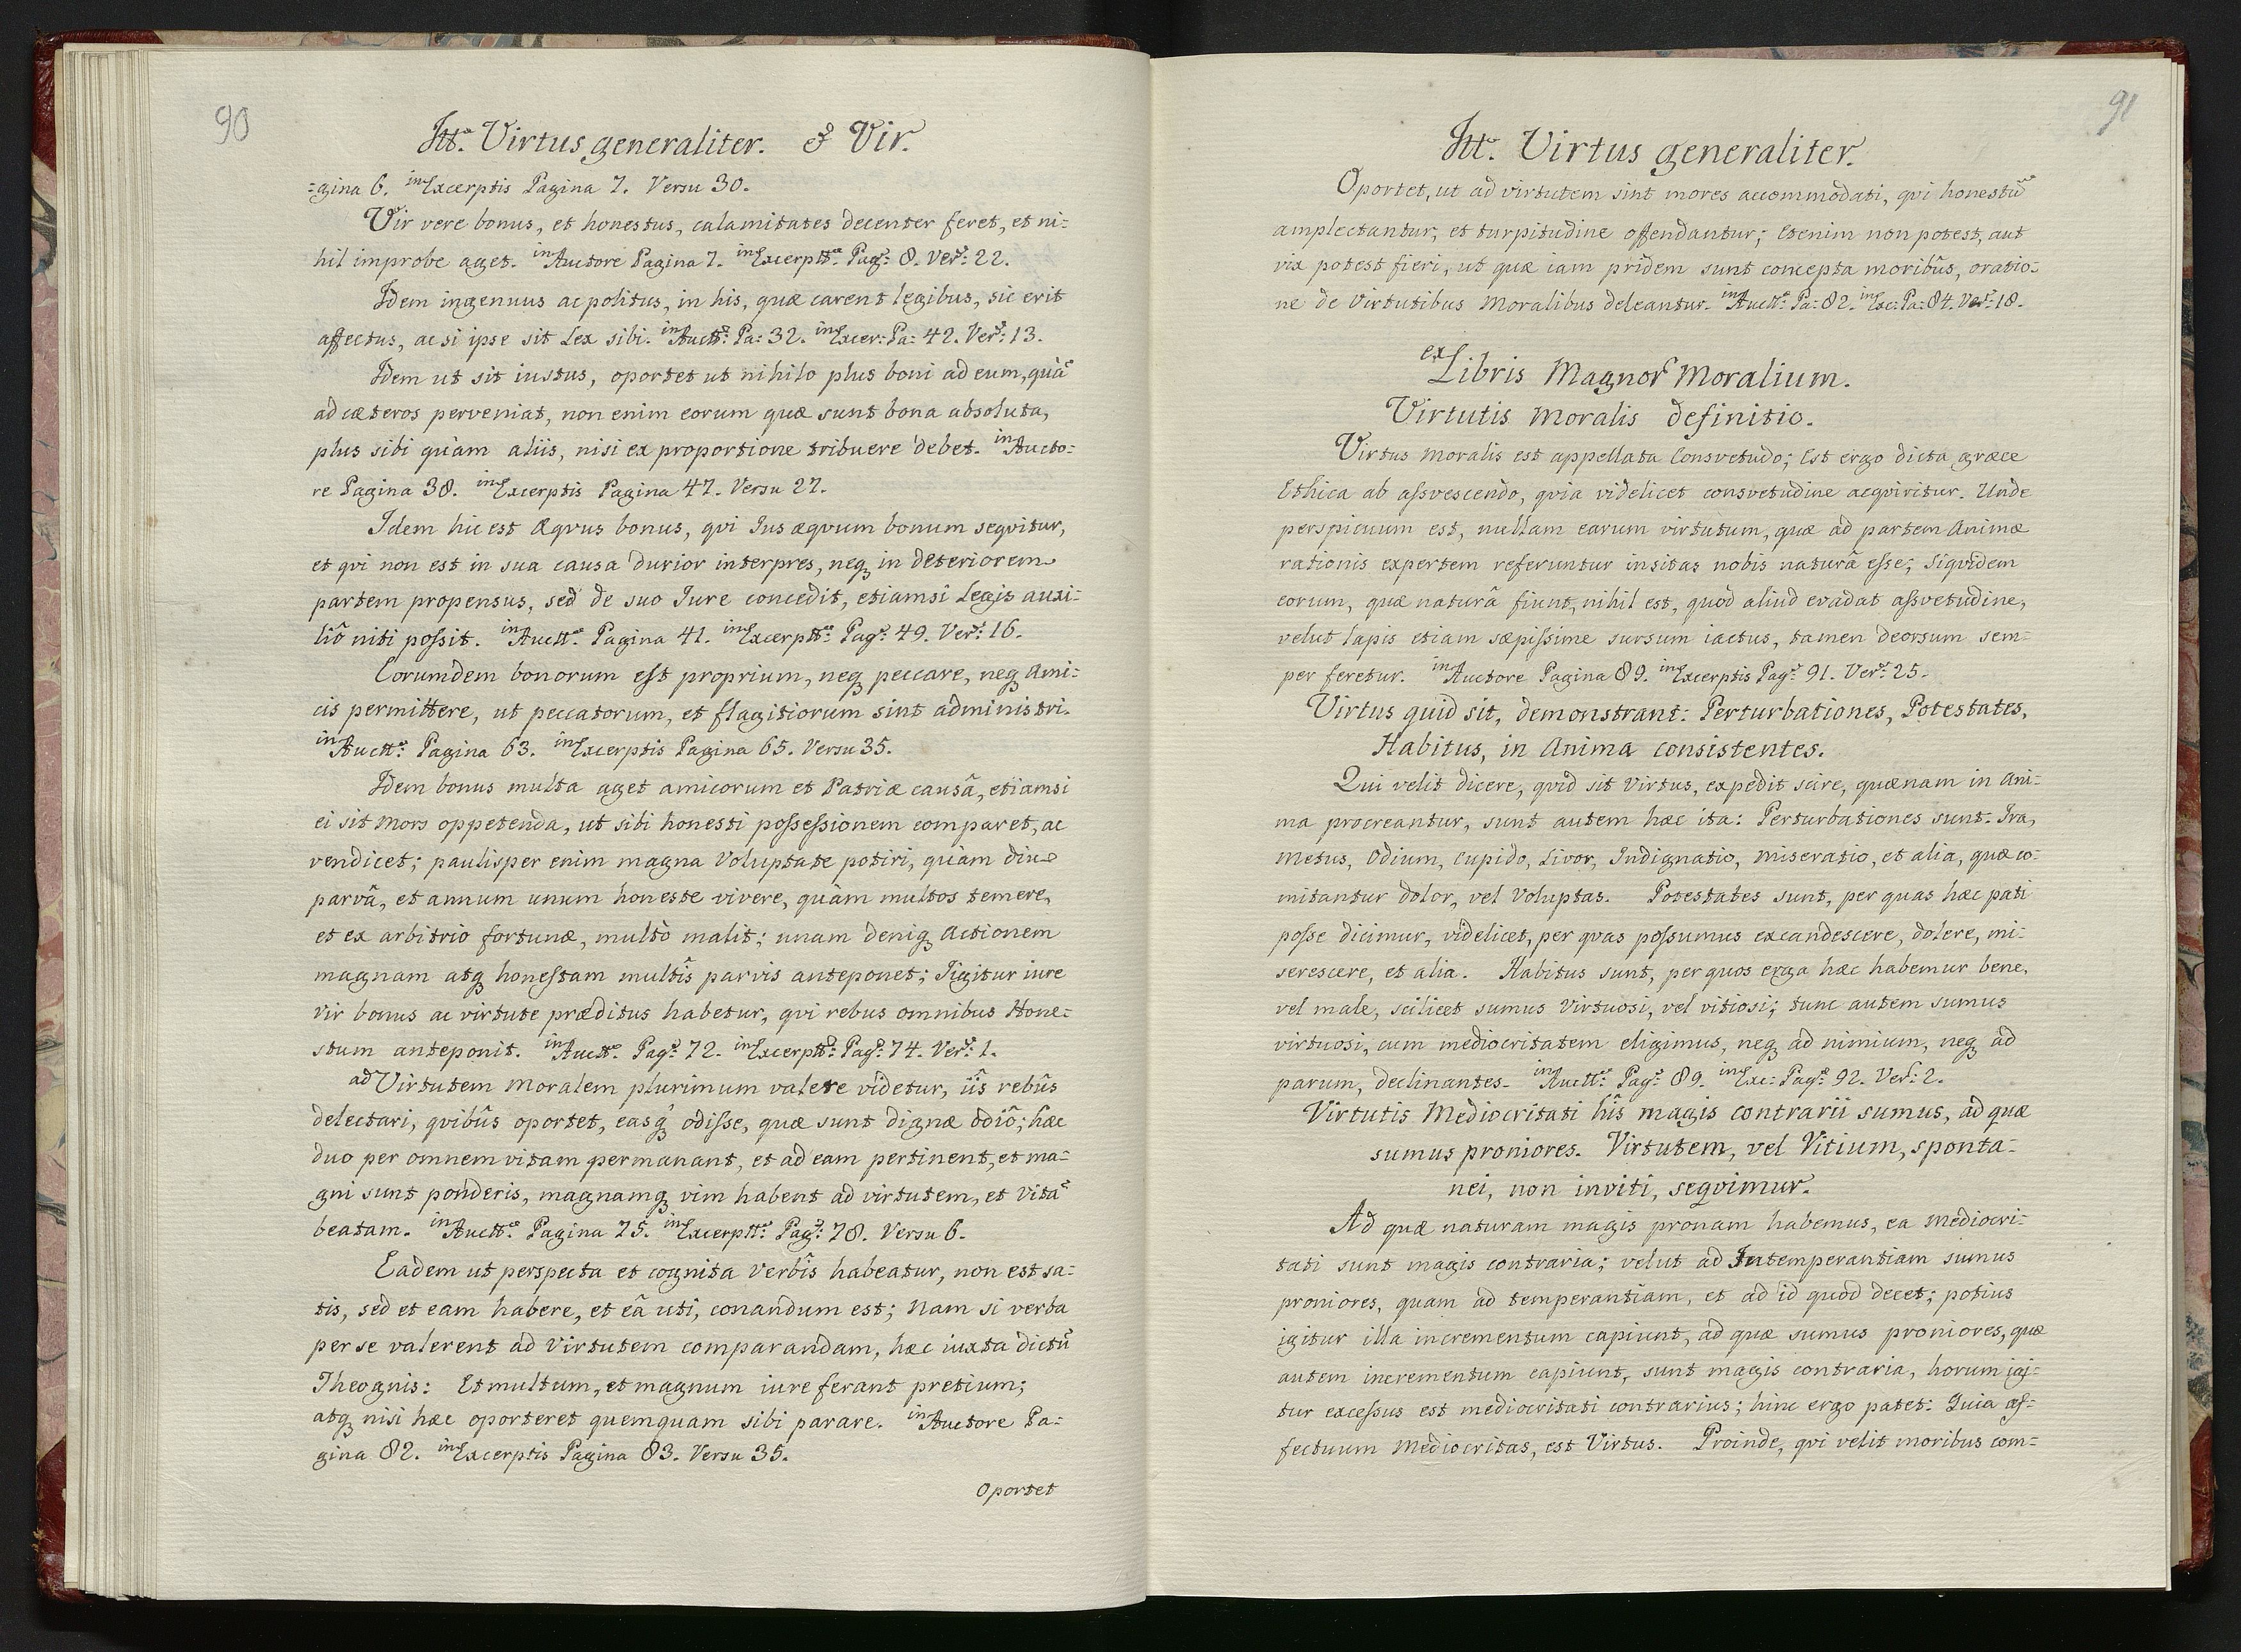 90
Itt. Virtus generaliter. & Vir.
=gina 6. in Excerptis Pagina 7. Versu 30.
Vir vere bonus, et honestus, calamitates decenter feret, et ni=
hil improbe aget. in Auctore Pagina 7. in Excerptt: Pag: 8. Ver: 22.
Idem ingenuus ac politus, in his, quæ carent legibus, sic erit
affectus, ac si ipse sit Lex sibi. in Auctt: Pa: 32. in Excer: Pa: 42. Ver: 13.
Idem ut sit iustus, oportet ut nihilo plus boni ad eum, quà̃
ad cæteros perveniat, non enim eorum quæ sunt bona absoluta,
plus sibi quàm aliis, nisi ex proportione tribuere debet. in Aucto=
re Pagina 38. in Excerptis Pagina 47. Versu 27.
Idem hic est Æqvus bonus, qvi Ius æqvum bonum seqvitur,
et qvi non est in sua causa durior interpres, neqꝫ in deteriorem
partem propensus, sed de suo Iure concedit, etiamsi Legis auxi=
liô niti poſsit. in Auctt: Pagina 41. in Excerptt: Pag: 49. Ver: 16.
Eorumdem bonorum eſt proprium, neqꝫ peccare, neqꝫ Ami=
cis permittere, ut peccatorum, et flagitiorum sint administri.
in Auctt: Pagina 63. in Excerptis Pagina 65. Versu 35.
Idem bonus multa aget amicorum et Patriæ causâ, etiamsi
ei sit Mors oppetenda, ut sibi honesti poſseſsionem comparet, ac
vendicet; paulisper enim magna Voluptate potiri, quàm diu
parvâ, et annum unum honeste vivere, quàm multos temere,
et ex arbitrio fortunæ, multò malit; unam deniqꝫ Actionem
magnam atqꝫ honeſtam multîs parvis anteponet; Igitur iure
Vir bonus ac virtute præditus habetur, qvi rebus omnibus Hone=
stum anteponit. in Auctt: Pag: 72. in Excerptt: Pag: 74. Ver: 1.
ad Virtutem Moralem plurimum valere videtur, iîs rebûs
delectari, qvibûs oportet, easqꝫ́ odiſse, quæ sunt dignæ odiô; hæc
duo per omnem vitam permanant, et ad eam pertinent, et ma=
gni sunt ponderis, magnamqꝫ vim habent ad virtutem, et Vitã
beatam. in Auctt: Pagina 75. in Excerptt: Pag: 78. Versu 6.
Eadem ut perspecta et cognita verbîs habeatur, non est sa=
tis, sed et eam habere, et eâ uti, conandum est; Nam si verba
per se valerent ad Virtutem comparandam, hæc iuxta dictũ
Theognis: Et multum, et magnum iure ferant pretium;
atqꝫ nisi hæc oporteret quemquam sibi parare. in Auctore Pa=
gina 82. in Excerptis Pagina 83. Versu 35.
Oportet
91
Itt. Virtus generaliter.
Oportet, ut ad virtutem sint mores accommodati, qvi honestũ
amplectantur, et turpitudine offendantur; Etenim non potest, aut
vix potest fieri, ut quæ iam pridem sunt concepta moribûs, oratio=
ne de Virtutibus Moralibus deleantur. in Auctt: Pa: 82. in Exc: Pa: 84. Ver: 18.
ex Libris Magnor Moralium.
Virtutis Moralis definitio.
Virtus Moralis est appellata Consvetudo; Est ergo dicta græce
Ethica ab aſsvescendo, qvia videlicet consvetudine acqviritur. Unde
perspicuum est, nullam earum virtutum, quæ ad partem Animæ
rationis expertem referuntur insitas nobis naturâ eſse; Siqvidem
eorum, quæ naturâ fiunt, nihil est, quod aliud evadat aſsvetudine,
velut lapis etiam sæpiſsime sursum iactus, tamen deorsum sem=
per feretur. in Auctore Pagina 89. in Excerptis Pag: 91. Ver: 25.
Virtus quid sit, demonstrant: Perturbationes, Potestates,
Habitus, in Anima consistentes.
Qui velit dicere, qvid sit Virtus, expedit scire, quænam in Ani=
ma procreantur, sunt autem hæc ita: Perturbationes sunt. Ira,
Metus, Odium, Cupido, Livor, Indignatio, Miseratio, et alia, quæ co=
mitantur dolor, vel Voluptas. Potestates sunt, per quas hæc pati
poſse dicimur, videlicet, per qvas poſsumus excandescere, dolere, mi=
serescere, et alia. Habitus sunt, per quos erga hæc habemur bene,
vel male, scilicet sumus Virtuosi, vel vitiosi; tunc autem sumus
virtuosi, cum mediocritatem eligimus, neqꝫ ad nimium, neqꝫ ad
parum, declinantes. in Auctt: Pag: 89. in Exc: Pag: 92. Ver: 2.
Virtutis Mediocritati hîs magis contrarii sumus, ad quæ
sumus proniores. Virtutem, vel Vitium, sponta=
nei, non inviti, seqvimur.
Ad quæ naturam magis pronam habemus, ea Mediocri=
tati sunt magis contraria; velut ad Intemperantiam sumus
proniores, quam ad temperantiam, et ad id quod decet; potius
igitur illa incrementum capiunt, ad quæ sumus proniores, quæ
autem incrementum capiunt, sunt magis contraria, horum igi=
tur exceſsus est mediocritati contrarius; hinc ergo patet: Quia af=
fectuum Mediocritas, est Virtus. Proinde, qvi velit moribus com=